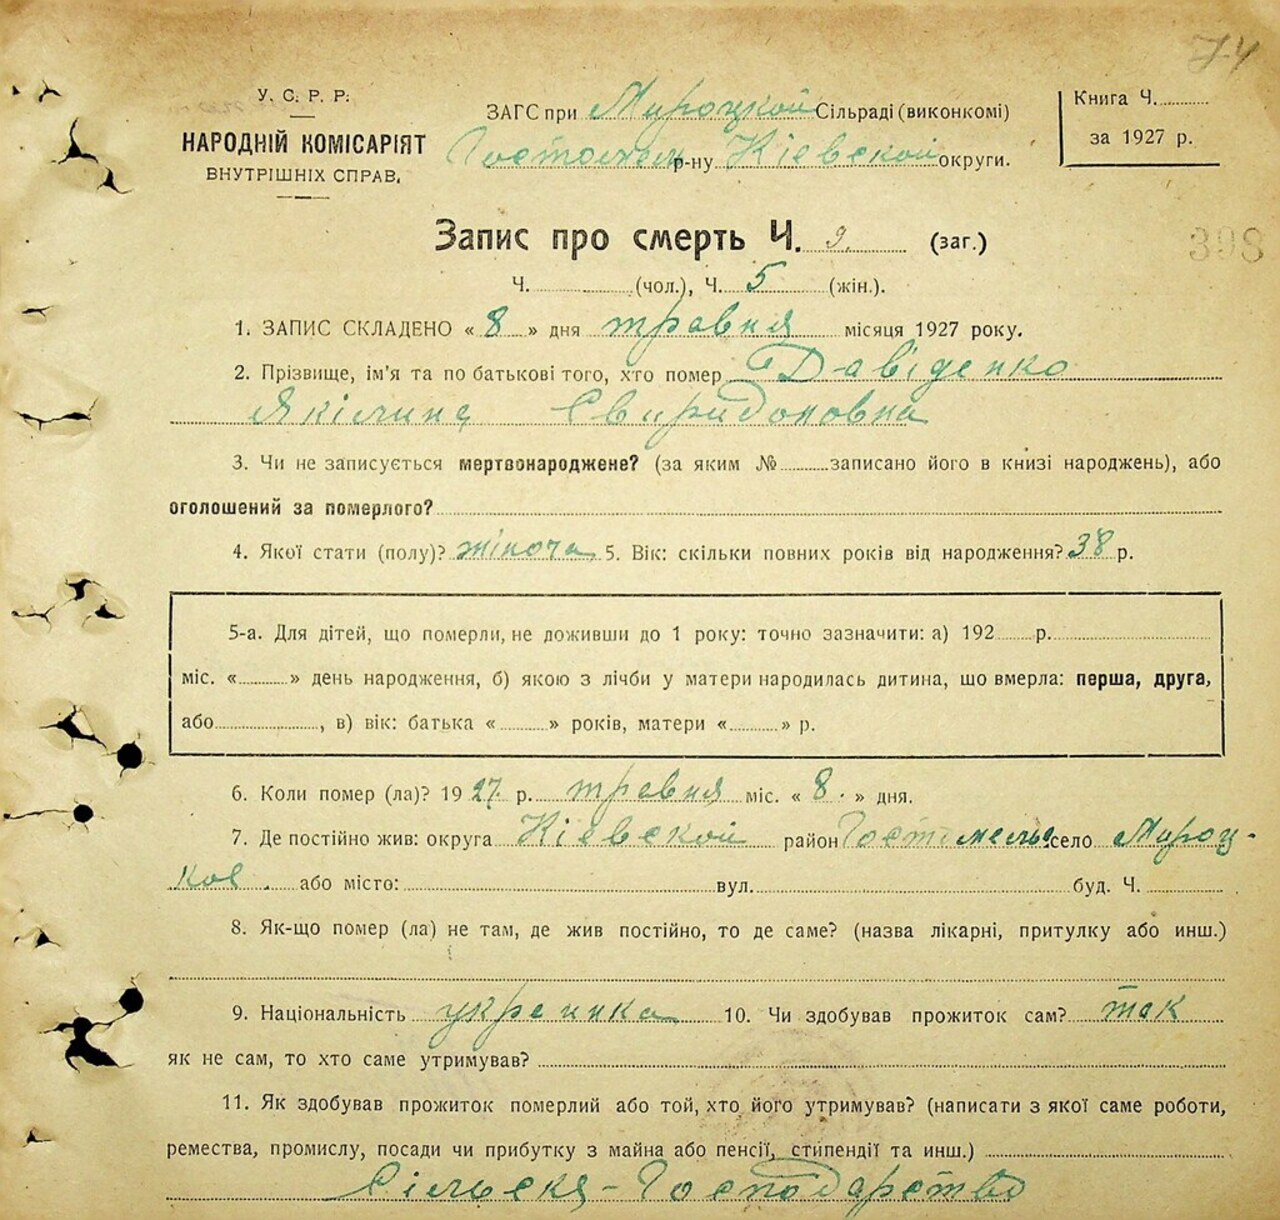 74
У. С. Р. Р.
НАРОДНІЙ КОМІСАРІЯТ
ВНУТРІШНІХ СПРАВ.
ЗАГС при Мироцкой Сільраді (виконкомі)
Гостомель р-ну Кіевской округи.
Книга Ч.
за 1927 р.
Запис про смерть Ч. 9. (заг.)
398
Ч. (чол.), Ч. 5 (жін.).
1. ЗАПИС СКЛАДЕНО « 8 » дня травня місяця 1927 року.
2. Прізвище, ім'я та по батькові того, хто помер Давіденко
Якілина Свиридоновна
3. Чи не записується мертвонароджене? (за яким № записано його в книзі народжень), або
оголошений за померлого?
4. Якої стати (полу)? жіноча 5. Вік: скільки повних років від народження? 38 р.
5-а. Для дітей, що померли, не доживши до 1 року: точно зазначити: а) 192 р.
міс. « » день народження, б) якою з лічби у матери народилась дитина, що вмерла: перша, друга,
або , в) вік: батька « » років, матери « » р.
6. Коли помер (ла)? 1927. р. травня міс. « 8. » дня.
7. Де постійно жив: округа Кіевской район Гостомельс село Мироц-
кое . або місто: вул. буд. Ч.
8. Як-що помер (ла) не там, де жив постійно, то де саме? (назва лікарні, притулку або инш.)
9. Національність украинка 10. Чи здобував прожиток сам? так
як не сам, то хто саме утримував?
11. Як здобував прожиток померлий або той, хто його утримував? (написати з якої саме роботи,
ремества, промислу, посади чи прибутку з майна або пенсії, стипендії та инш.)
Сільске-Господарство